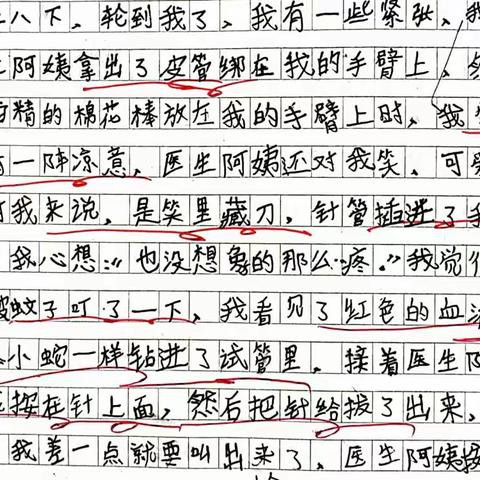 八下，轮到我了，我有一些紧张，我
阿姨拿出了皮管绑在我的手臂上，然
精的棉花棒放在我的手臂上时，我
一阵凉意，医生阿姨还对我笑，可
我来说，是笑里藏刀，针管插进了我
我心想：“也没想象的那么疼。”我觉得
被蚊子叮了一下，我看见了红色的血
小蛇一样钻进了试管里，接着医生阿
按在针上面，然后把针给拔了出来，
我差一点就要叫出来了，医生阿姨按